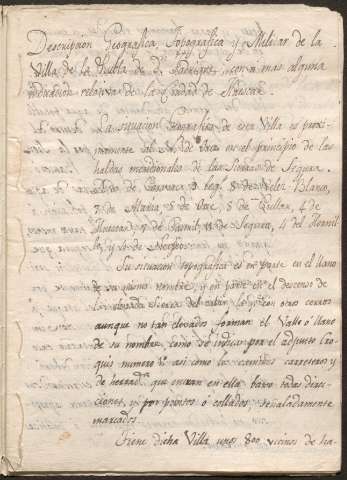 Descripcion Geografica Topografica y Militar de la
Villa de la Puebla de Dn Fadrique, con mas alguna
relativa de la Ciudad de Huescar.
La situacion Geografica de esta Villa es
al de en el principio de las
faldas meridionales de las Sierras de Segura.
de Caravaca 9 leg. 8 de Velez Blanco,
7 de Maria, 5 de Orce, 8 de Cullar, 4 de
Huescar, 7 de 11 de Segura, 4 del
y de Nerpio.
Su situacion topografica es en parte en el llano
de su mismo nombre, y en parte en el descenso de
la elevada Sierra del que con otros cerros
aunque no tan elevados forman el Valle ó llano
de su nombre, como se indica por el adjunto cro-
quis numero 1º asi como los caminos carreteros y
de herradura que entran en ella bajo todas direc-
ciones, y por puertos ó collados, señaladamente
marcados.
Tiene dicha Villa unos 800 vecinos de